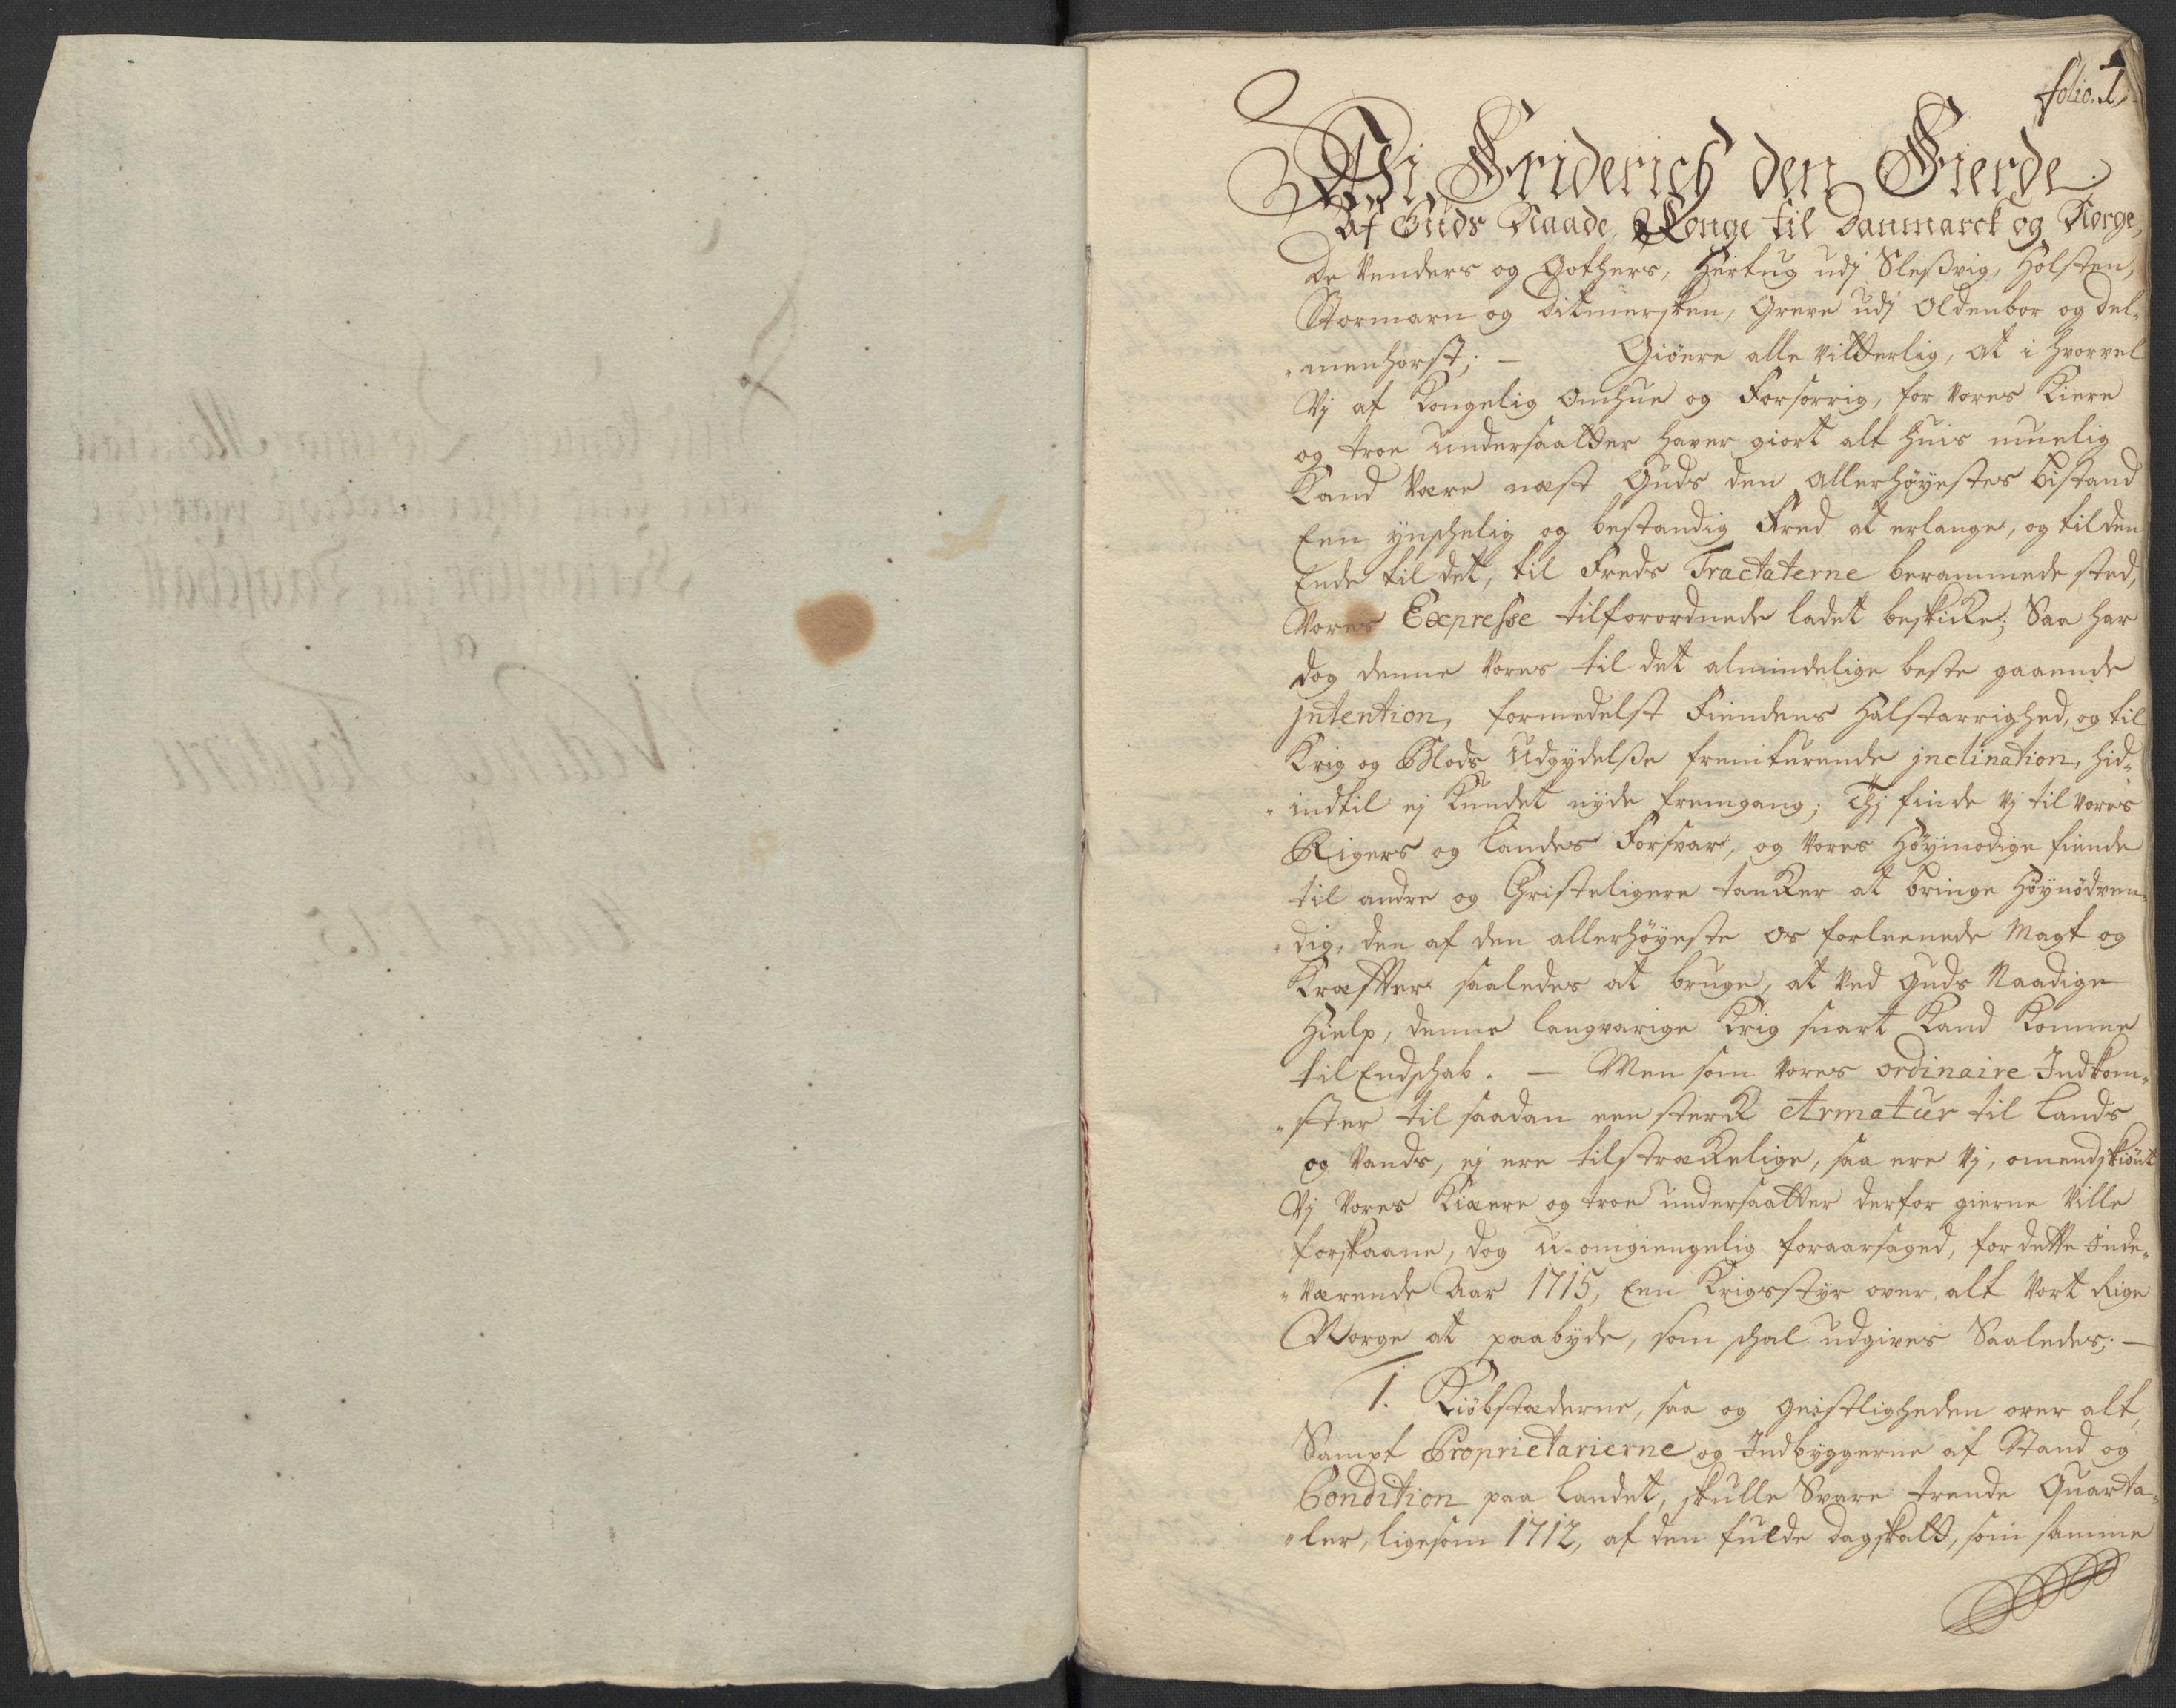 folio. 1,
Wi Friderich den Fierde.
Af Guds Naade, Konge til Danmarck og Norge,
De Venders og Gothers, Hertug udj Sleßvig, Holsten,
Stormarn og Ditmersken, Greve udj Oldenbor og Del-
"menhorst; — Giöere alle Vitterlig, at i hvorvel
Vj af Kongelig Omhue og Forsorrig, for Vores Kiere
og troe Undersaatter haver giort alt huis muelig
Kand Være næst Guds den Allerhöyestes bistand
Een ynschelig og bestandig Fred at erlange, og til den
Ende til det, til Freds Tractaterne berammede sted,
Vores Expresse tilforordnede ladet beskicke; Saa har
dog denne Vores til det almindelige beste gaaende
jntention, formedelst Fiendens Halstarrighed, og til
Krig og Blods Udgydelße fremturende jnclination, hid-
"indtil ej Kundet nyde fremgang; Thj finde Vj til Vores
Rigers og Landes Forsvar, og Vores Höymodige fiende
til andre og Christeligere tancker at bringe Höynödven-
"dig, den af den allerhöyeste os forleenede Magt og
Kræffter saaledes at bruge, at Ved Guds Naadige
Hielp, denne langvarige Krig snart Kand Komme
til Endschab. — Men som Vores ordinaire Indkom-
"ster til saadan een sterck Armatur til Lands
og Vands, ej ere tilstræckelige, saa ere Vj, omendskiönt
Vj Vores Kiære og troe undersaatter derfor gierne Ville
forskaane, dog u-omgiengelig foraarsaged, for dette Inde-
"Værende Aar 1715, Een Krigsstyr over alt Vort Rige
Norge at paabyde, som schal udgives Saaledes; —
1. Kiöbstæderne, saa og Geistligheden over alt,
Sampt Proprietarierne og Indbyggerne af Stand og
Condition paa Landet, skulle Svare trende Quarta-
"ler, ligesom 1712, af den fulde Dagskatt, som samme